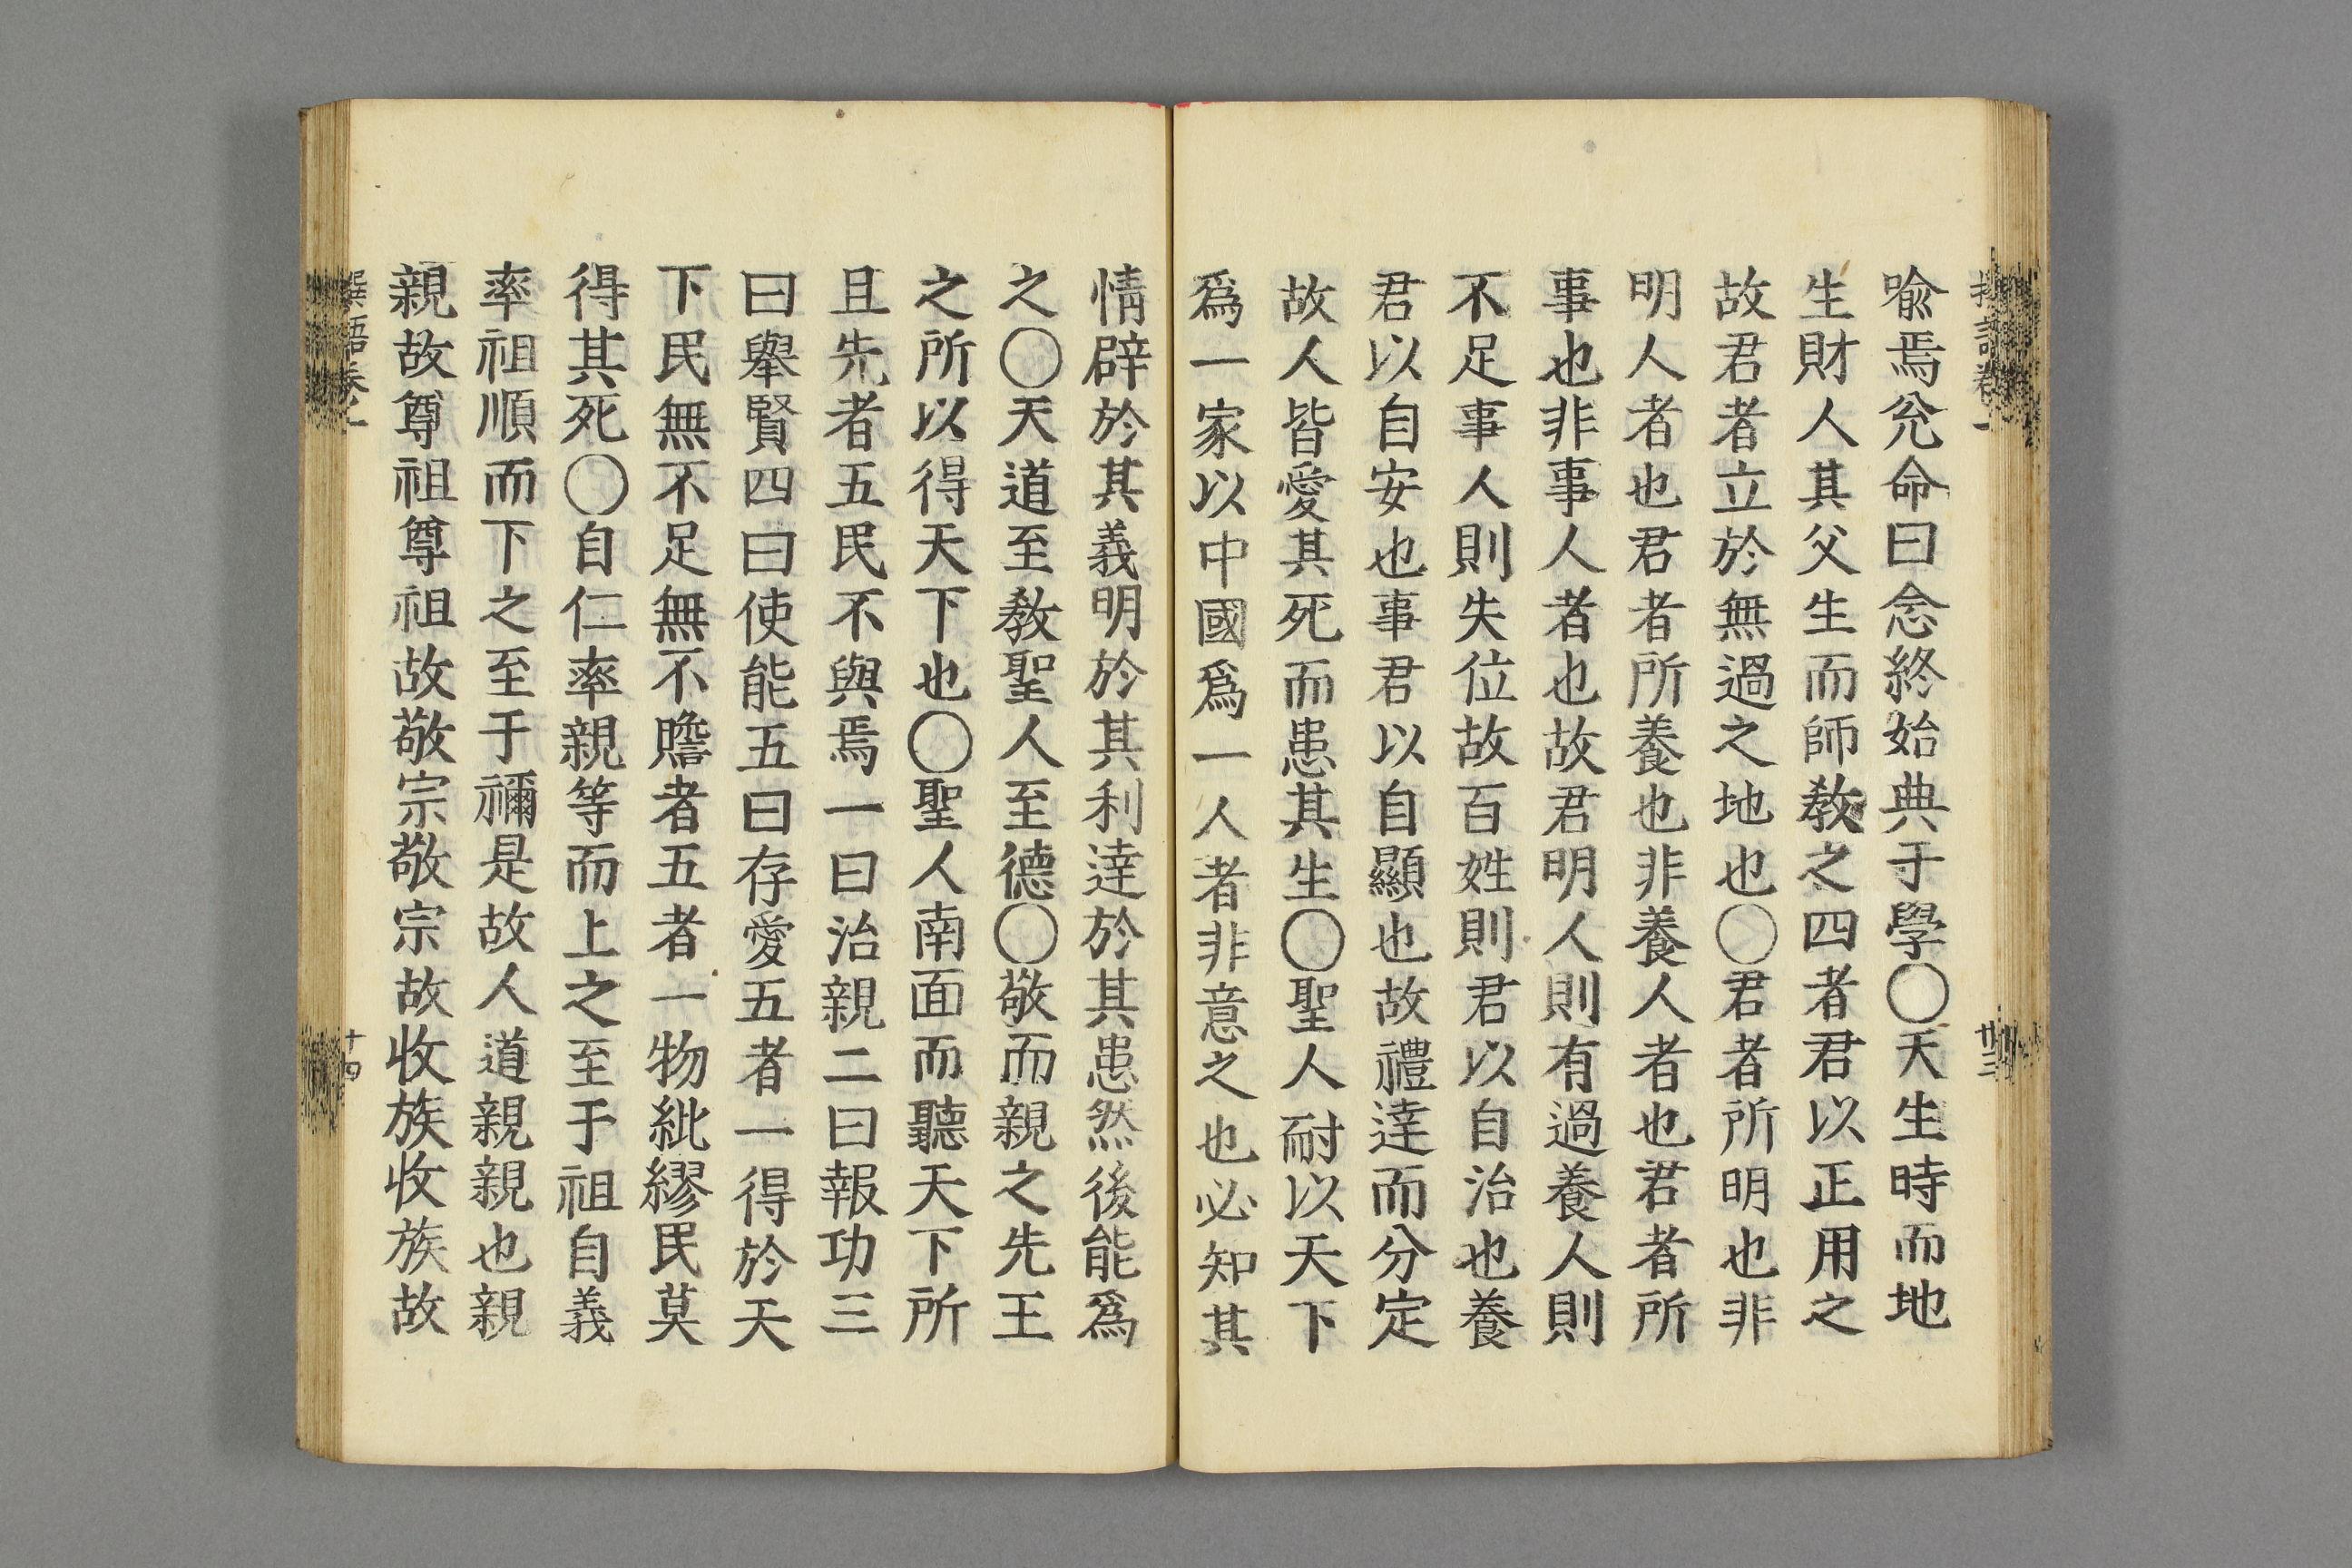 喩焉兊命曰念終始典于學〇天生時而地
生財人其父生而師敎之四者君以正用之
故君者立於無過之地也〇君者所明也非
明人者也君者所養也非養人者也君者所
事也非事人者也故君明人則有過養人則
不足事人則失位故百姓則君以自治也養
君以自安也事君以自顯也故禮達而分定
故人皆愛其死而患其生〇聖人耐以天下
爲一家以中國爲一人者非意之也必知其
情辟於其義明於其利達於其患然後能爲
之〇天道至敎聖人至德〇敬而親之先王
之所以得天下也〇聖人南面而聽天下所
且先者五民不與焉一曰治親二曰報功三
曰舉賢四曰使能五曰存愛五者一得於天
下民無不足無不贍者五者一物紕繆民莫
得其死〇自仁率親等而上之至于祖自義
率祖順而下之至于禰是故人道親親也親
親故尊祖尊祖故敬宗敬宗故收族收族故
十四